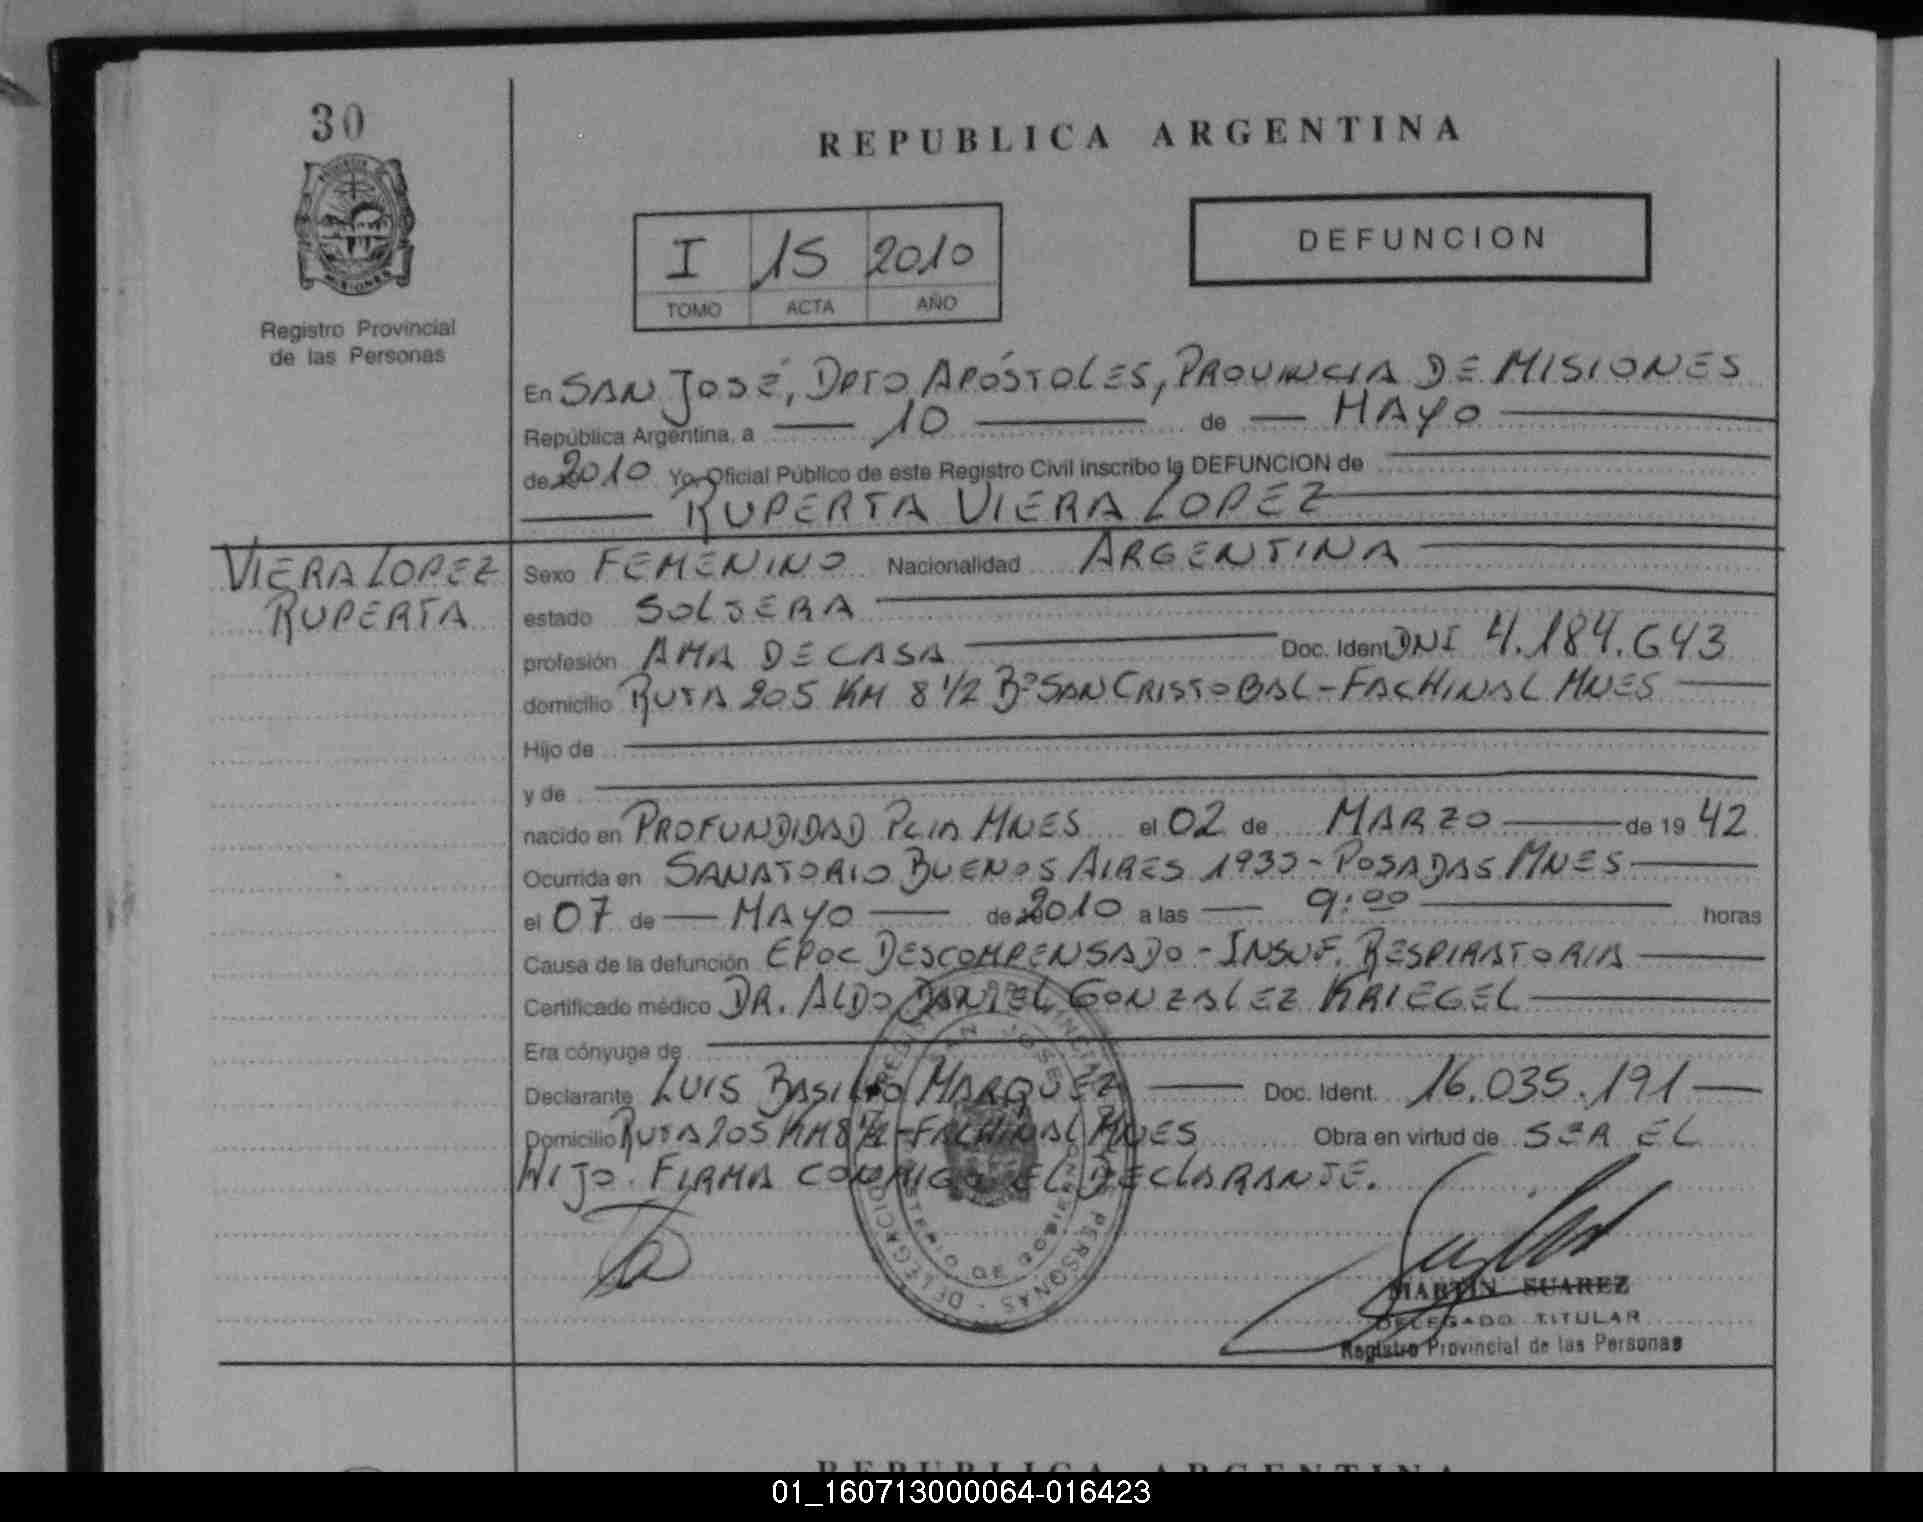 30
REPUBLICA ARGENTINA
I 15 2010
TOMO ACTA AÑO
DEFUNCION
Registro Provincial
de las Personas
En SAN JOSÉ, DPTO APÓSTOLES, PROVINCIA DE MISIONES
República Argentina, a 10 de MAYO
de 2010 Yo, Oficial Público de este Registro Civil inscribo la DEFUNCION de
RUPERTA VIERA LOPEZ
VIERA LOPEZ
RUPERTA
Sexo FEMENINO Nacionalidad ARGENTINA
estado SOLTERA
profesión AMA DE CASA Doc. Ident DNI 4.184.643
domicilio RUTA 205 KM 8 1/2 Bº SAN CRISTOBAL - FACHINAL MNES
Hijo de
y de
nacido en PROFUNDIDAD PCIA MNES el 02 de MARZO de 19 42
Ocurrida en SANATORIO BUENOS AIRES 1933 - POSADAS MNES
el 07 de MAYO de 2010 a las 9:00 horas
Causa de la defunción EPOC DESCOMPENSADO - INSUF. RESPIRATORIA
Certificado médico DR. ALDO DANIEL GONZALEZ KRIEGEL
Era cónyuge de
Declarante LUIS BASILIO MARQUEZ Doc. Ident. 16.035.191
Domicilio RUTA 205 KM 8 1/2 - FACHINAL MNES Obra en virtud de SER EL
HIJO. FIRMA CONMIGO EL DECLARANTE.
MARTIN SUAREZ
DELEGADO TITULAR
Registro Provincial de las Personas
REPUBLICA ARGENTINA
01_160713000064-016423